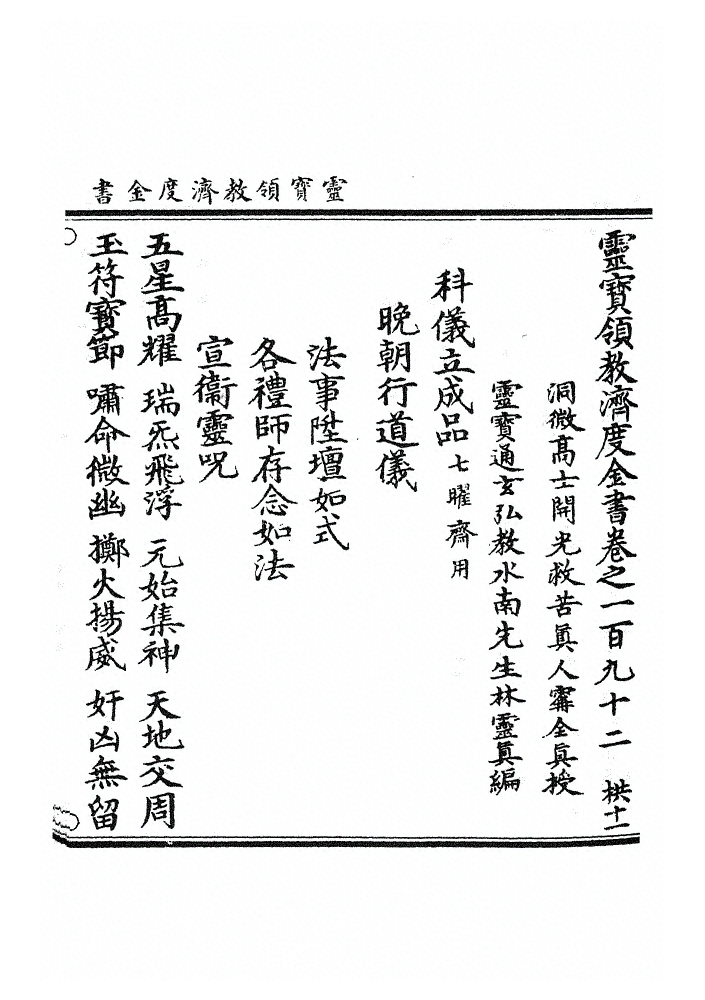 靈寶領教濟度金書
靈寶領教濟度金書卷之一百九十二 栱十一
洞微高士開光救苦眞人甯全眞授
靈寶通玄弘教水南先生林靈眞編
科儀立成品 七曜齋用
晚朝行道儀
法事陞壇如式
各禮師存念如法
宣衞靈咒
五星高耀 瑞炁飛浮 元始集神 天地交周
玉符寶節 嘯命微幽 擲火揚威 奸凶無留